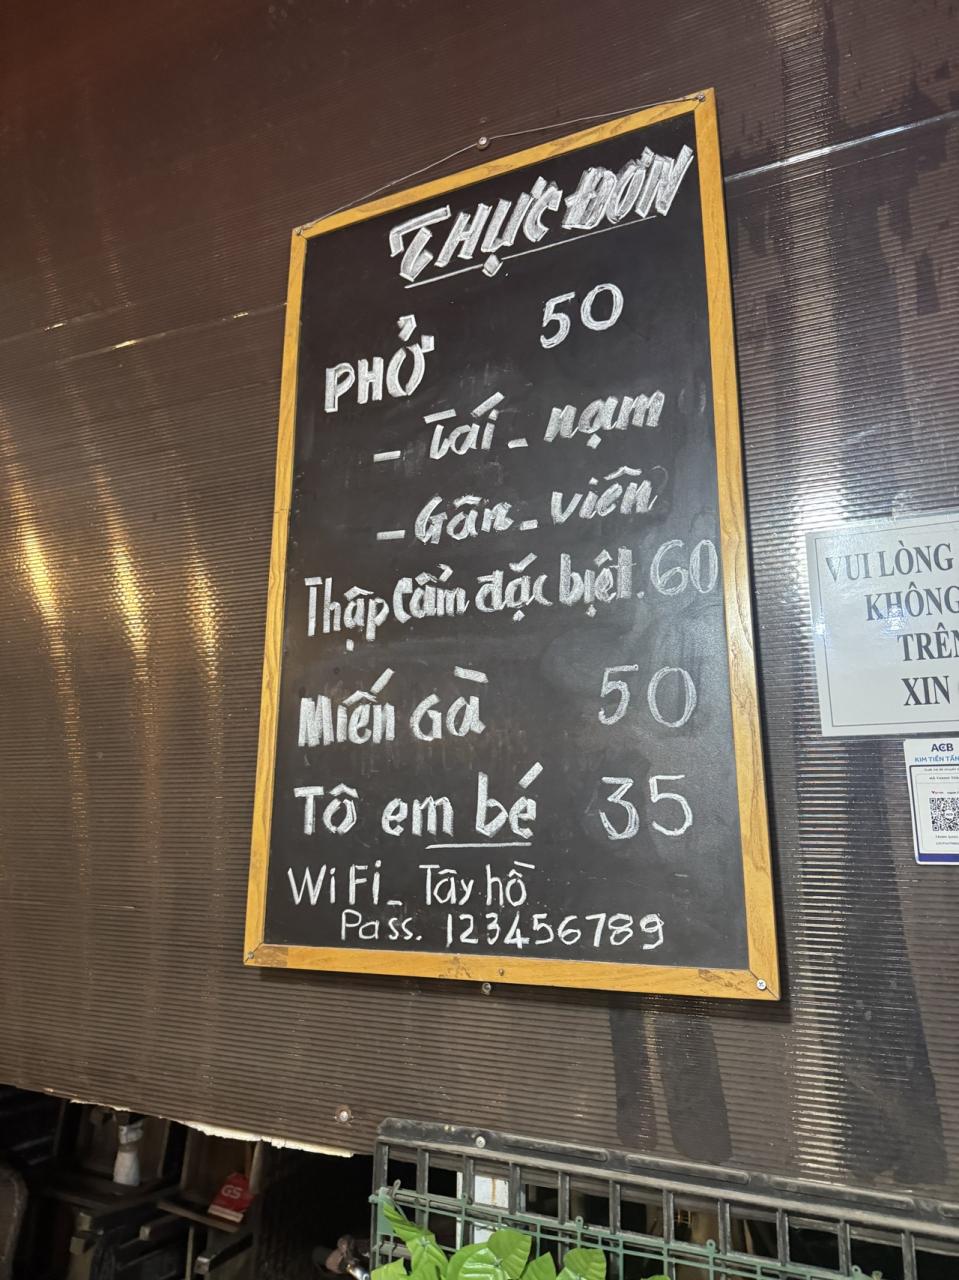 THỰC ĐƠN
PHỞ 50
- Tái - nạm
- Gân - viên
Thập Cẩm đặc biệt. 60
Miến Gà 50
Tô em bé 35
WiFi - Tây hồ
Pass. 123456789
VUI LÒNG
KHÔNG
TRÊN
XIN
ACB
GS